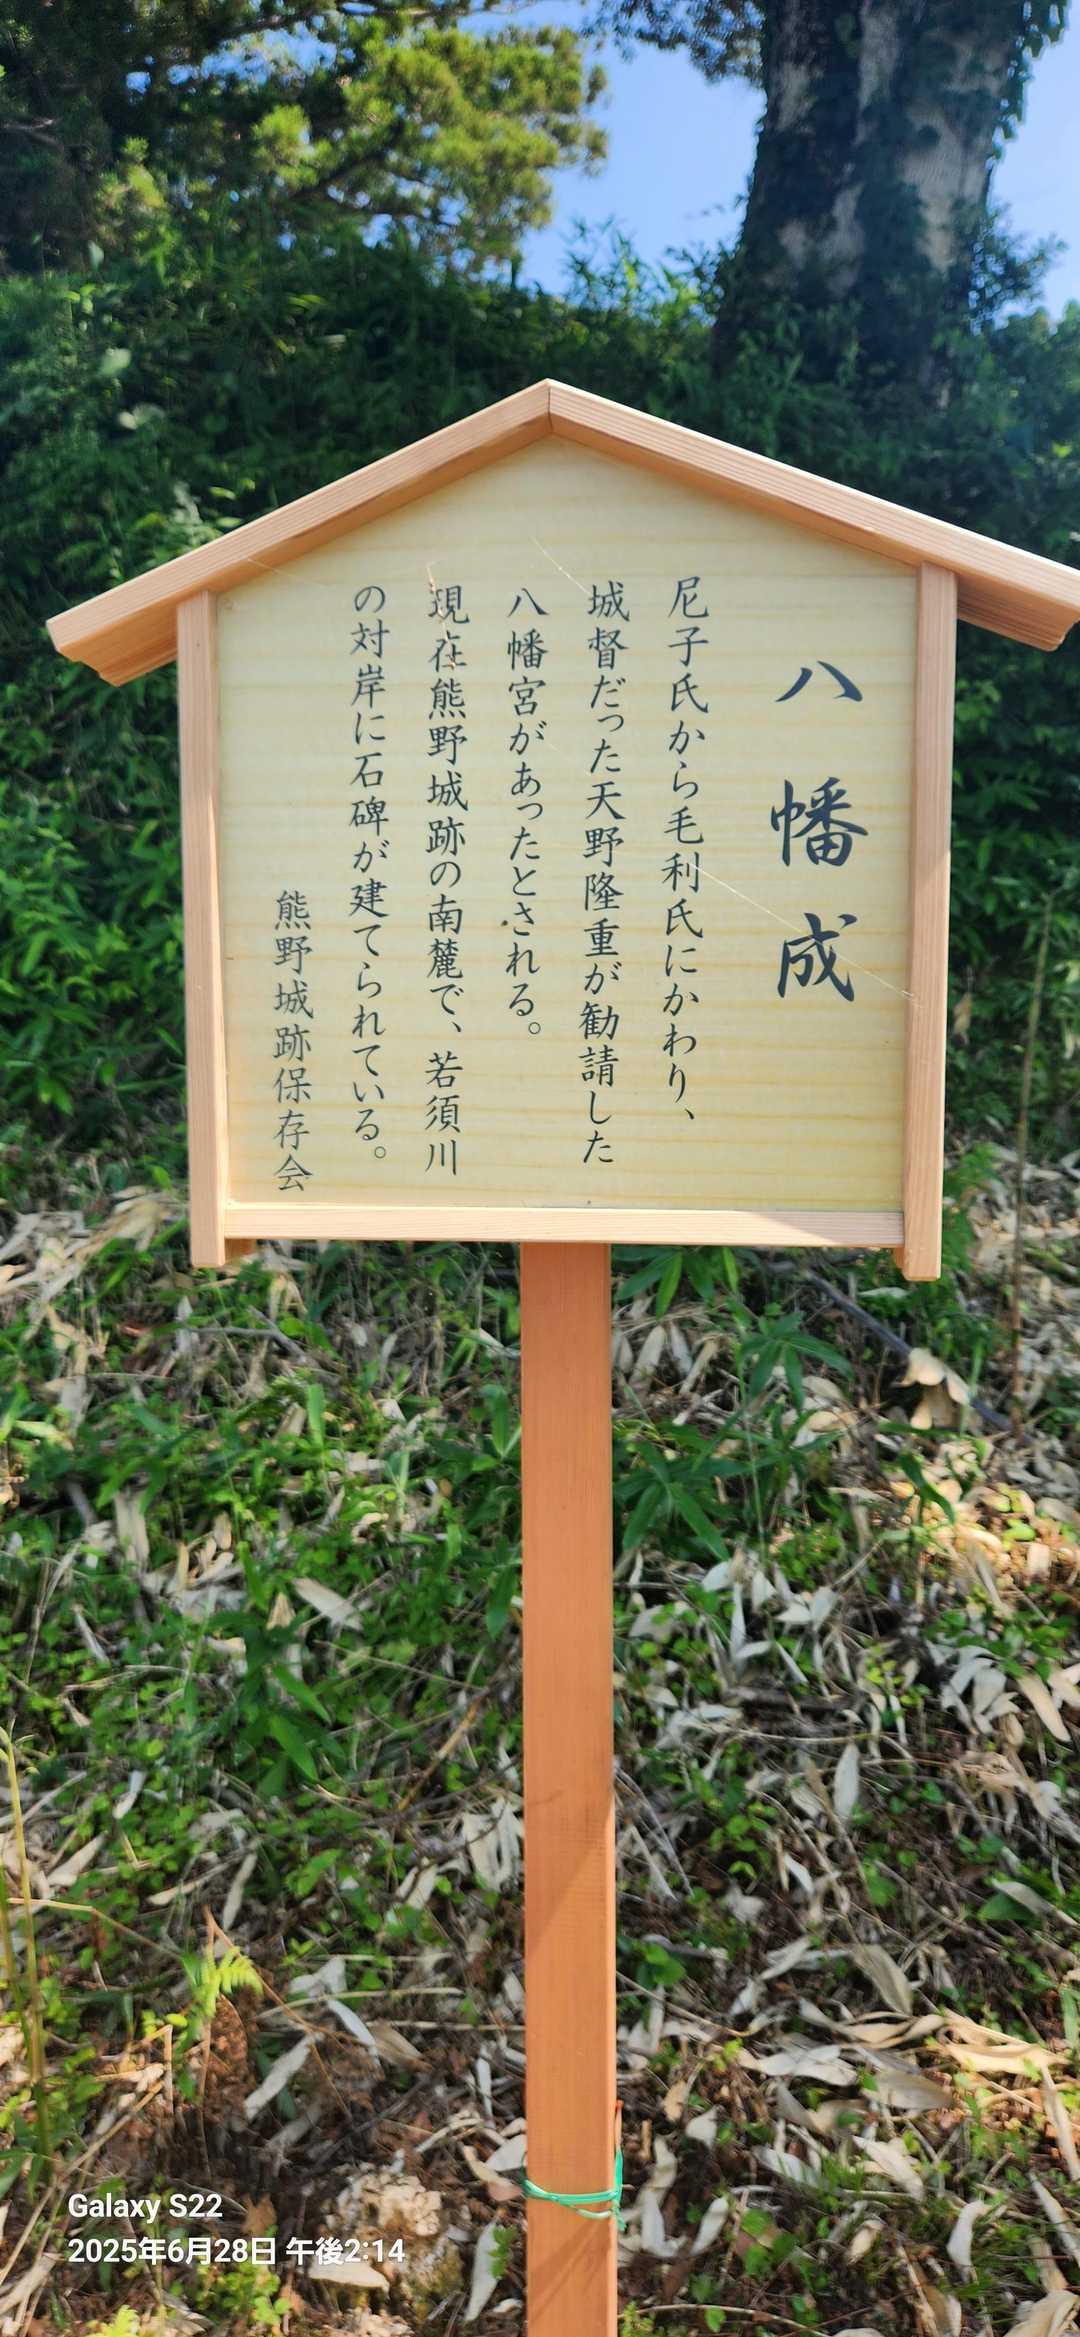 八幡成
尼子氏から毛利氏にかわり、
城督だった天野隆重が勧請した
八幡宮があったとされる。
現在熊野城跡の南麓で、若須川
の対岸に石碑が建てられている。
熊野城跡保存会
Galaxy S22
2025年6月28日 午後2:14